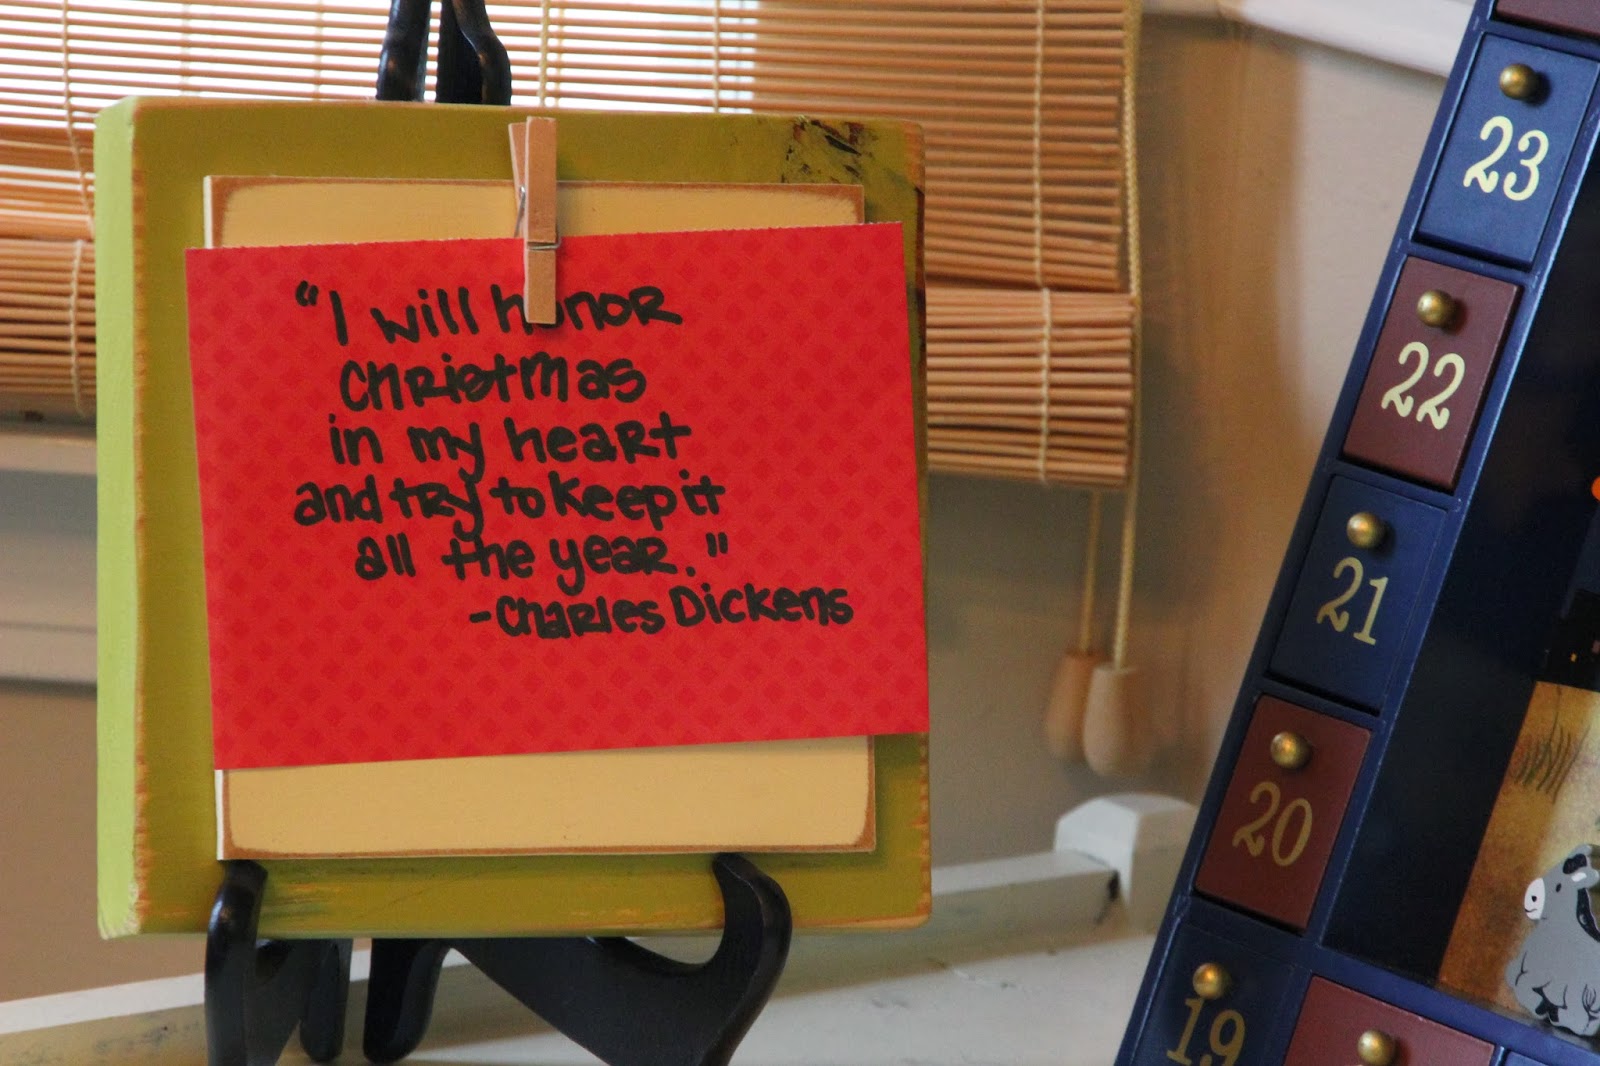 "I will honor
Christmas
in my heart
and try to keep it
all the year."
-Charles Dickens
23
22
21
20
19